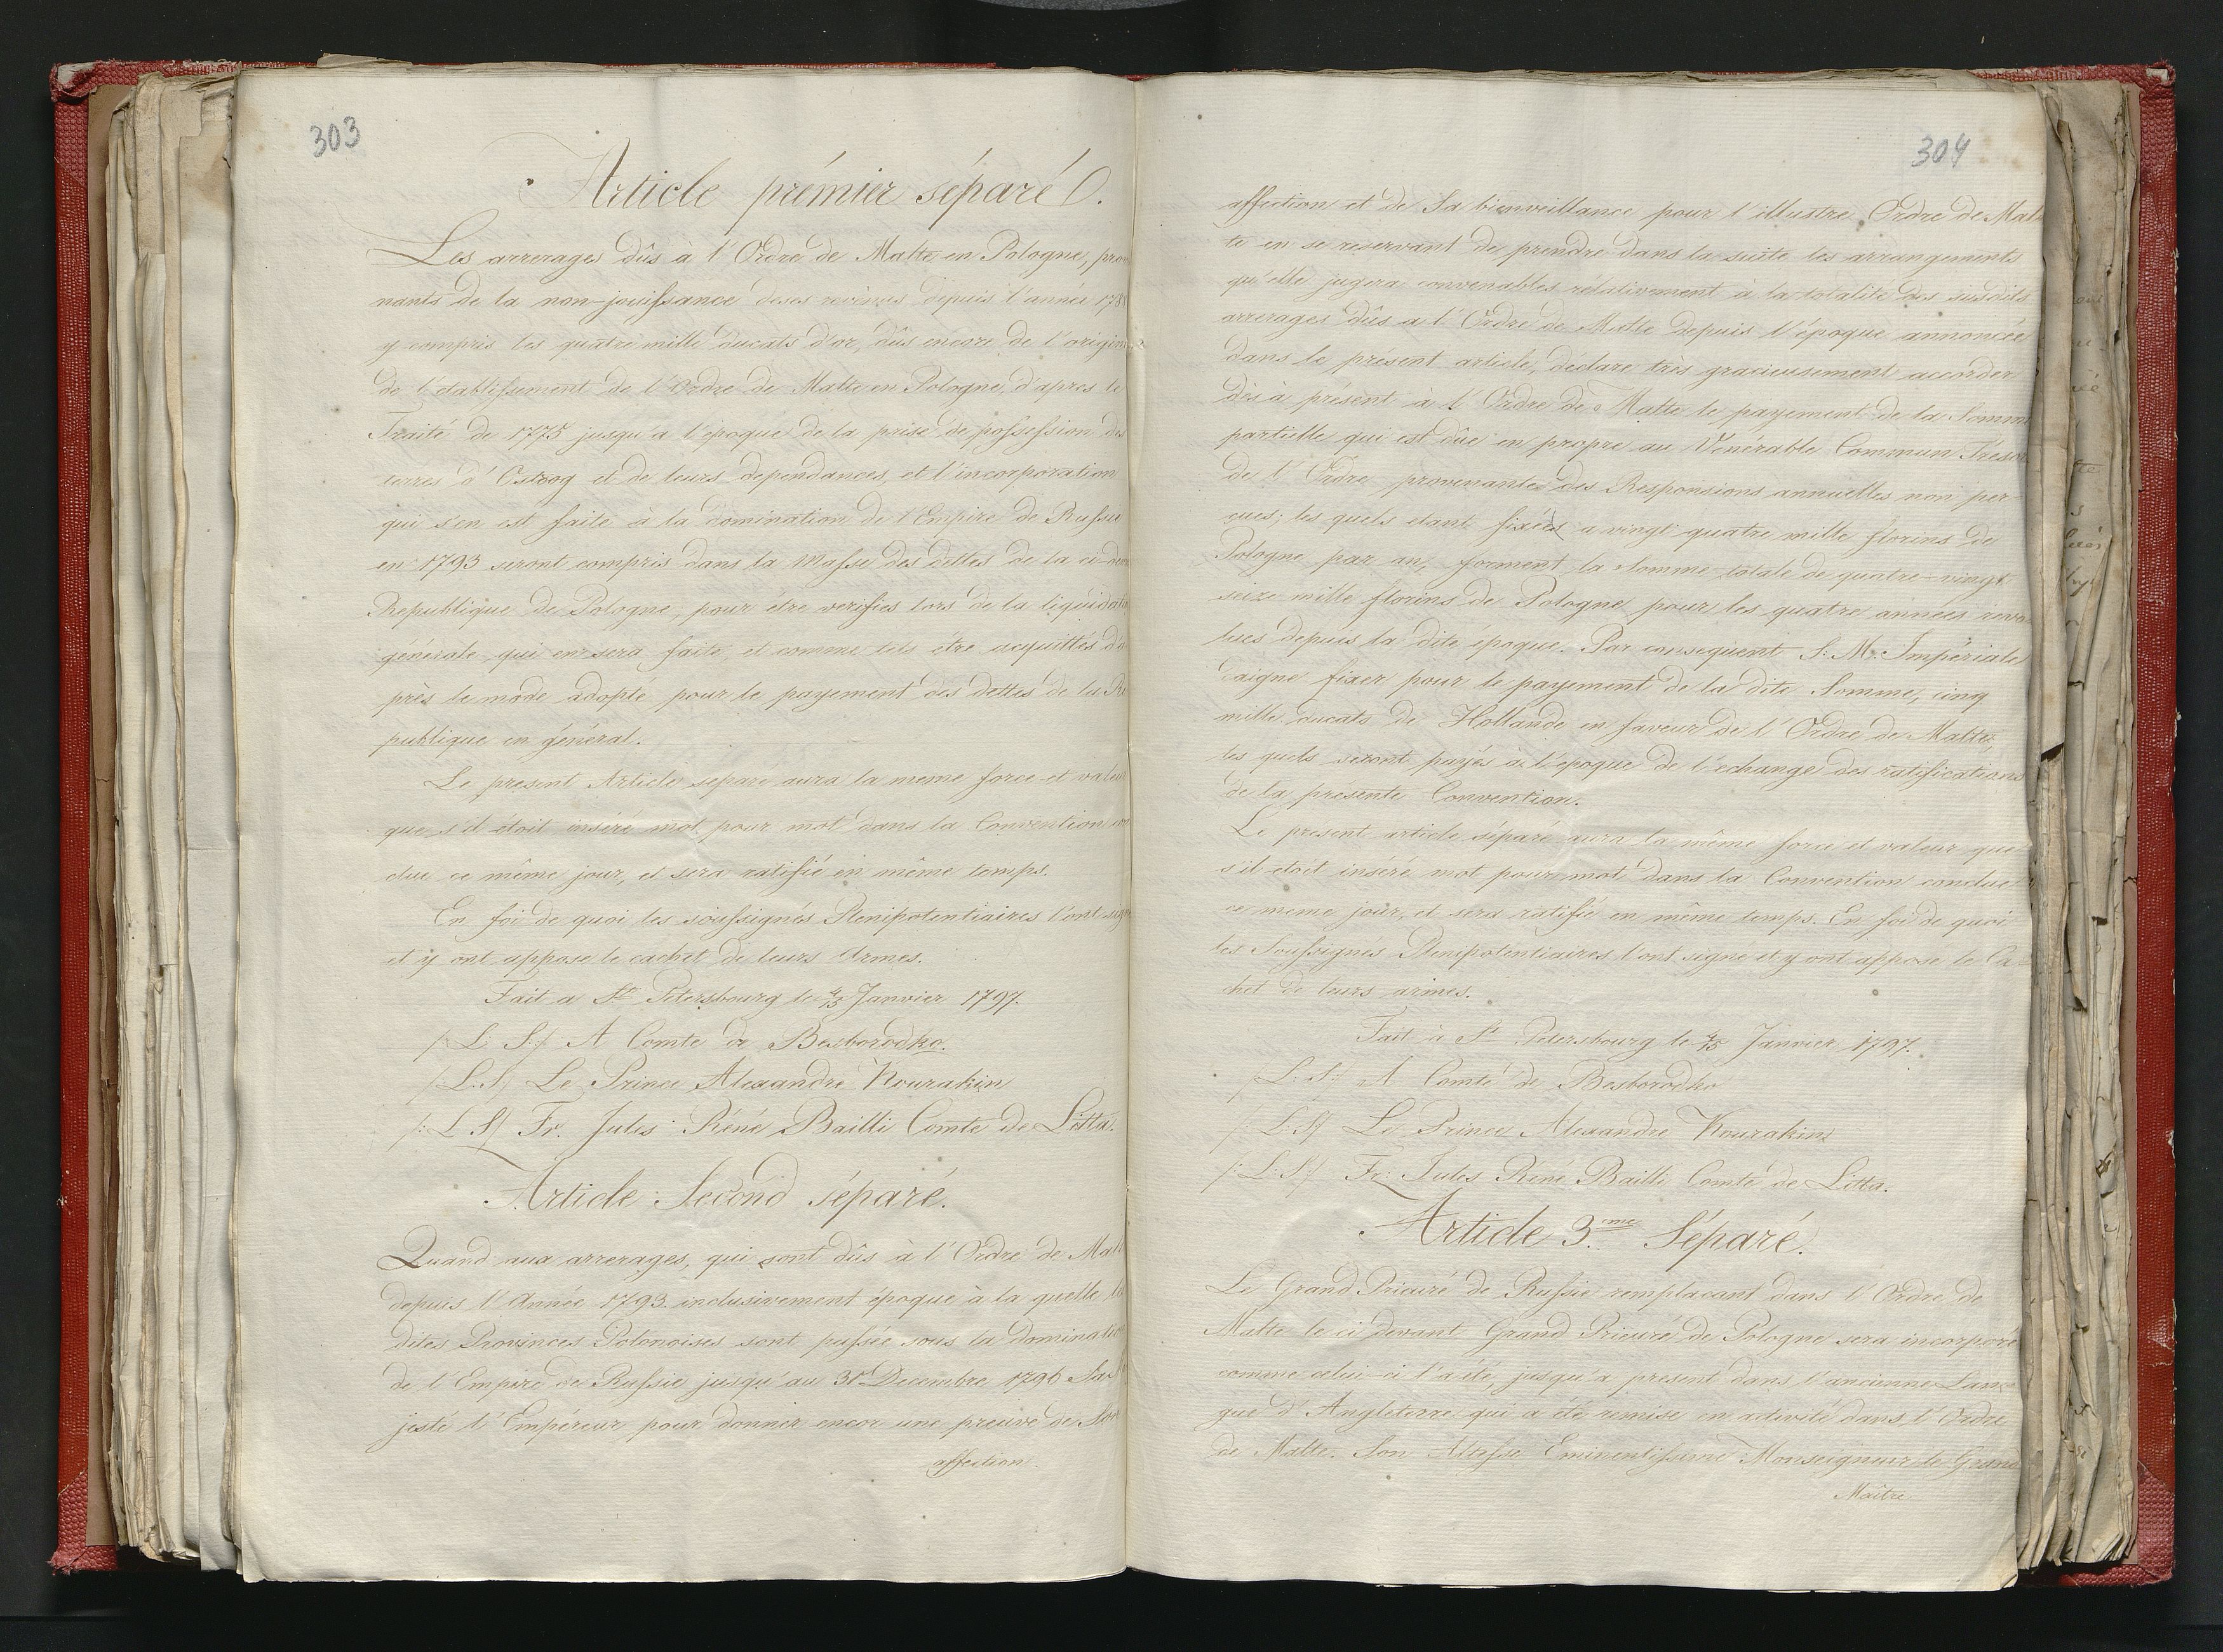 303
Article prémier séparé.
Les arrerages dûs à l'Ordre de Malte en Pologne, pro
nants de la non-jouissance de ses revenus depuis l'année 178
y compris les quatre mille ducats d'or, dûs encore de l'origin
de l'etablissement de l'Ordre de Malte en Pologne, d'apres le
Traité de 1775 jusqu'a l'époque de la prise de possession des
terres d'Ostrog et de leurs dependances, et l'incorporation
qui s'en est faite à la domination de l'Empire de Russie
en 1793 seront compris dans la Masse des dettes de la ci-dev
Republique de Pologne, pour étre verifies lors de la liquidati
générale qui en sera faite, et comme tels étre acquittés d'a
près le mode adopté pour le payement des dettes de la Ré
publique en général.
Le present Article separé aura la meme force et valeur
que s'il étoit inséré mot pour mot dans la Convention con
clue ce même jour, et sera ratifié en même temps.
En foi de quoi les soussignés Plenipotentiaires l'ont sig
et y ont appose le cachet de leurs Armes.
Fait a St Petersbourg le 4/15 Janvier 1797.
/:L. S:/ A Comte de Besborodko.
/:L.S/ Le Prince Alexandre Kourakin
/:L S/ Fr. Jules Réné Bailli Comte de Litta.
Article Second séparé.
Quand aux arrerages, qui sont dûs à l'Ordre de Mal
depuis l'Année 1793. inclusivement époque à la quelle les
dites Provinces Polonoises sont passée sous la dominatio
de l'Empire de Russie jusqu'au 31 Decembre 1796 Sa
jesté l'Empéreur pour donner encor une preuve de Son
affection.
304
affection et de Sa bienveillance pour l'illustre Ordre de Mal
te en se reservant de prendre dans la suite les arrangements
qu'elle jugera convenables rélativement à la totalité des susdits
arrerages dûs a l'Ordre de Malte depuis l'époque annoncée
dans le présent article, déclare très gracieusement accorder
dès à présent à l'Ordre de Malte le payement de la Somme
partielle qui est dûe en propre au Vénérable Commun Trésor
de l'Ordre provenante des Responsions annuelles non per-
çues; les quels etant fixées a vingt quatre mille florins de
Pologne par an, forment la somme totale de quatre-vingt
seize mille florins de Pologne pour les quatre années revo
lues depuis la dite époque. Par consequent S: M: Impériale
daigne fixer pour le payement de la dite Somme, cinq
mille ducats de Hollande en faveur de l'Ordre de Malte,
les quels seront payés à l'époque de l'echange des ratifications
de la présente Convention.
Le present article séparé aura la même force et valeur que
s'il étoit inséré mot pour mot dans la Convention conclue
ce meme jour, et sera ratifié en même temps. En foi de quoi
les Soussignés Plenipotentiaires l'ont signe et y ont appose le Ca
chet de leurs armes.
Fait à St Petersbourg le 4/15 Janvier 1797.
/L: S:/ A Comte de Besborodko
/ L:S/ Le Prince Alexandre Kourakin
/: L: S:/ Fr: Jules Réné Bailli Comte de Litta.
Article 3.eme Séparé.
Le Grand Prieuré de Russie remplacant dans l'Ordre de
Malte le ci devant Grand Prieuré de Pologne sera incorporé
comme celui-ci l'a été jusqu'a present dans l'ancienne Lan
gue d'Angleterre qui a été remise en activité dans l'Ordre
de Malte. Son Altesse Eminentissime Monseigneur le Grand
Maitre